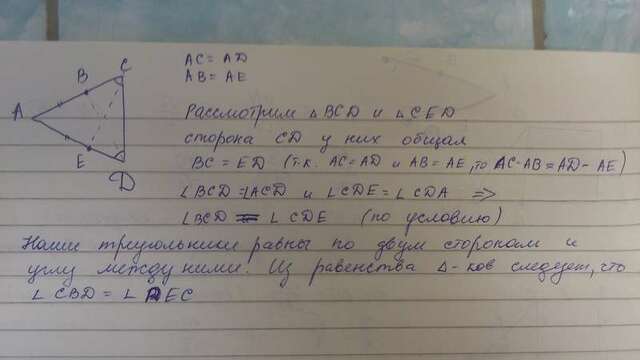 AC = AD
AB = AE
A
B
C
E
D
Рассмотрим △BCD и △CED
сторона CD у них общая
BC = ED (т.к. AC=AD и AB=AE, то AC-AB=AD-AE)
∠BCD=∠ACD и ∠CDE=∠CDA =>
∠BCD = ∠CDE (по условию)
Наши треугольники равны по двум сторонам и
углу между ними. Из равенства △-ков следует, что
∠CBD = ∠DEC